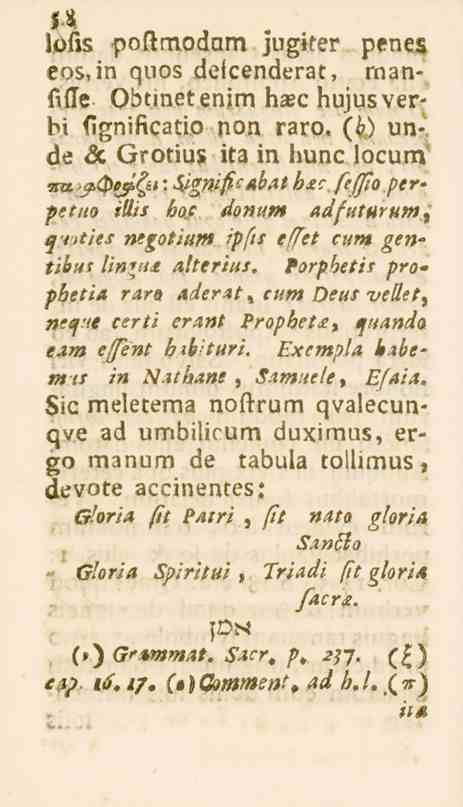 58
losis postmodum jugiter penes
eos, in quos descenderat, man-
sisse. Obtinet enim hæc hujus ver-
bi significatio non raro. (b) un-
de & Grotius ita in hunc locum
παραφράζει: Significabat hæc sessio per-
petuo illis hoc donum adfuturum,
quoties negotium ipsis esset cum gen-
tibus linguæ alterius. Porphetis pro-
phetia raro aderat, cum Deus vellet,
neque certi erant Prophetæ, quando
eam essent habituri. Exempla habe-
mus in Nathane, Samuele, Esaia.
Sic meletema nostrum qvalecun-
qve ad umbilicum duximus, er-
go manum de tabula tollimus,
devote accinentes:
Gloria sit Patri, sit nato gloria
Sancto
Gloria Spiritui, Triadi sit gloria
sacræ.
אמן
(ν) Grammat. Sacr. p. 237. (ξ)
cap. 16. 17. (ο) Comment. ad h.l. (π)